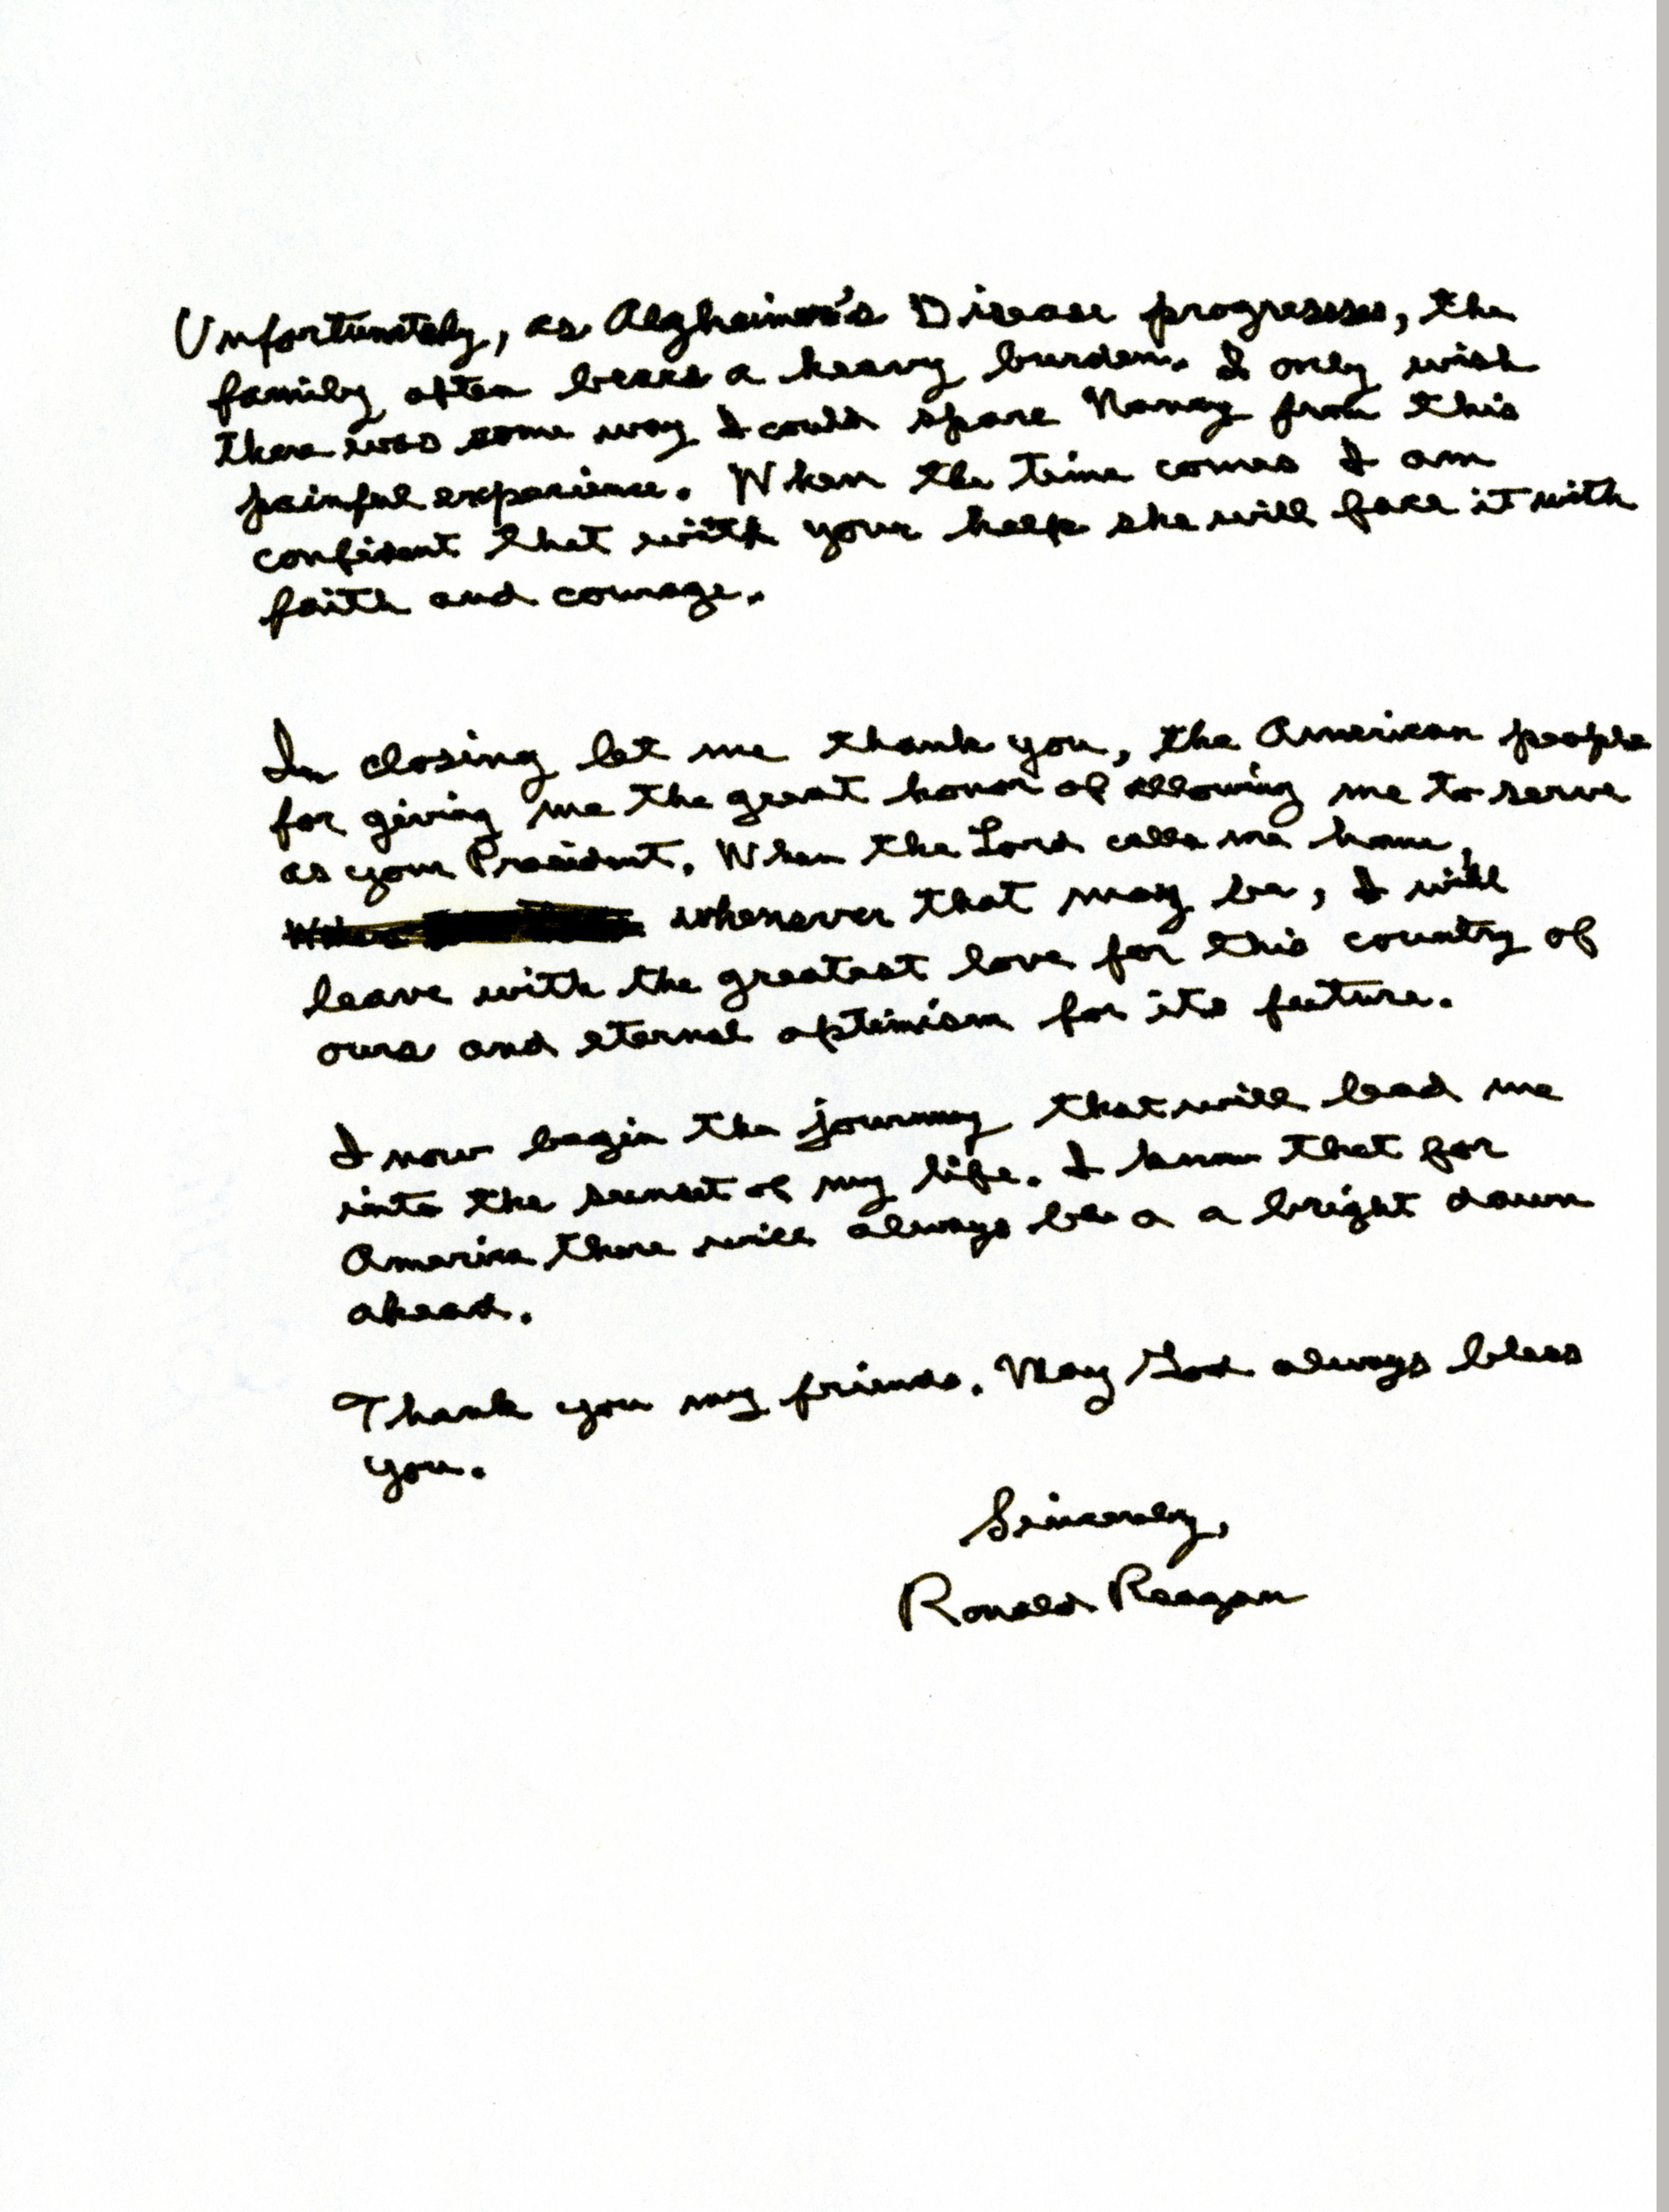 Unfortunately, as Alzheimer's Disease progresses, the
family often bears a heavy burden. I only wish
there was some way I could spare Nancy from this
painful experience. When the time comes I am
confident that with your help she will face it with
faith and courage.
In closing let me thank you, the American people
for giving me the great honor of allowing me to serve
as your President. When the Lord calls me home,
whenever that may be, I will
leave with the greatest love for this country of
ours and eternal optimism for its future.
I now begin the journey that will lead me
into the sunset of my life. I know that for
America there will always be a a bright dawn
ahead.
Thank you my friends. May God always bless
you.
Sincerely,
Ronald Reagan